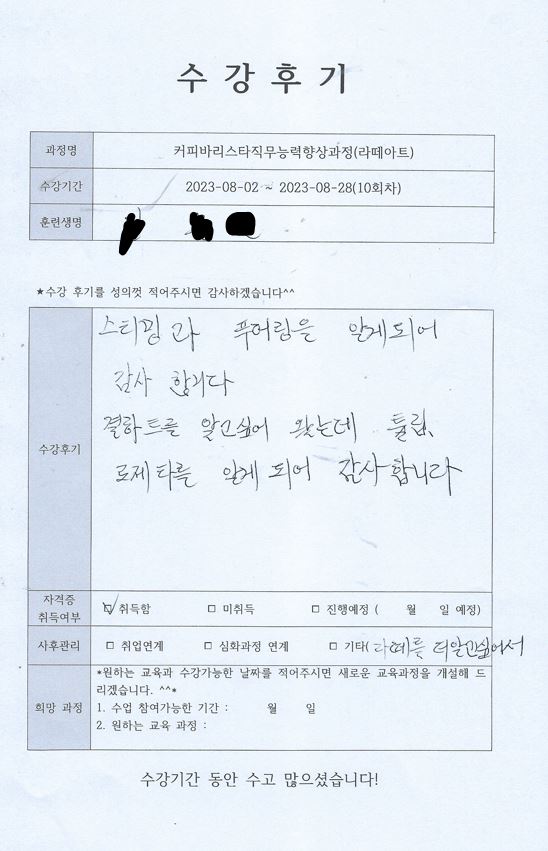 수 강 후 기
과정명 커피바리스타직무능력향상과정(라떼아트)
수강기간 2023-08-02 ~ 2023-08-28(10회차)
훈련생명
★수강 후기를 성의껏 적어주시면 감사하겠습니다^^
수강후기
스티핑과 푸어링을 알게되어
감사 합니다
결하트를 알고싶어 왔는데 튤립,
로제타를 알게 되어 감사합니다
자격증 취득여부 ☑ 취득함 □ 미취득 □ 진행예정 ( 월 일 예정)
사후관리 □ 취업연계 □ 심화과정 연계 □ 기타(라떼를 더알고싶어서
*원하는 교육과 수강가능한 날짜를 적어주시면 새로운 교육과정을 개설해 드
리겠습니다. ^^*
희망 과정
1. 수업 참여가능한 기간 : 월 일
2. 원하는 교육 과정 :
수강기간 동안 수고 많으셨습니다!